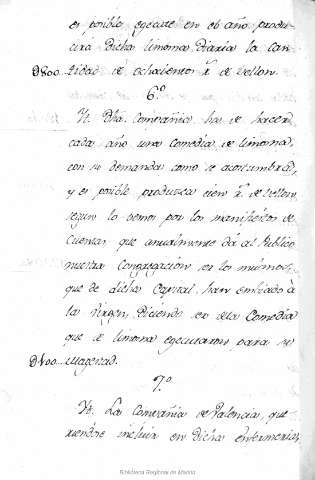 es posible egecute en ôb año produ-
cirá Dicha limosna Diaria la can-
D800. tidad de ochabentos r.s de vellon.
6.º
Yt. Dha. Compañia ha de hacer
cada año una Comedia de limosna,
con su demanda como se acostumbra,
y es posible produzca cien r.s de vellon,
segun lo vemos por los manifiestos de
Cuentas que anualmente dá al Publico
nuestra Congregacion en los mismos,
que de dicha Capital han embiado â
la Virgen, Diciendo ser dela Comedia
que de limosna egecutaron para su
D100... Magestad.
7.º
Yt. La Compañia de Valencia, que
tiendose incluia en Dicha enfermeria,
Biblioteca Regional de Madrid